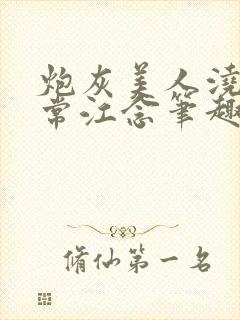 炮灰美人浇
常江念笔趣
修仙第一名